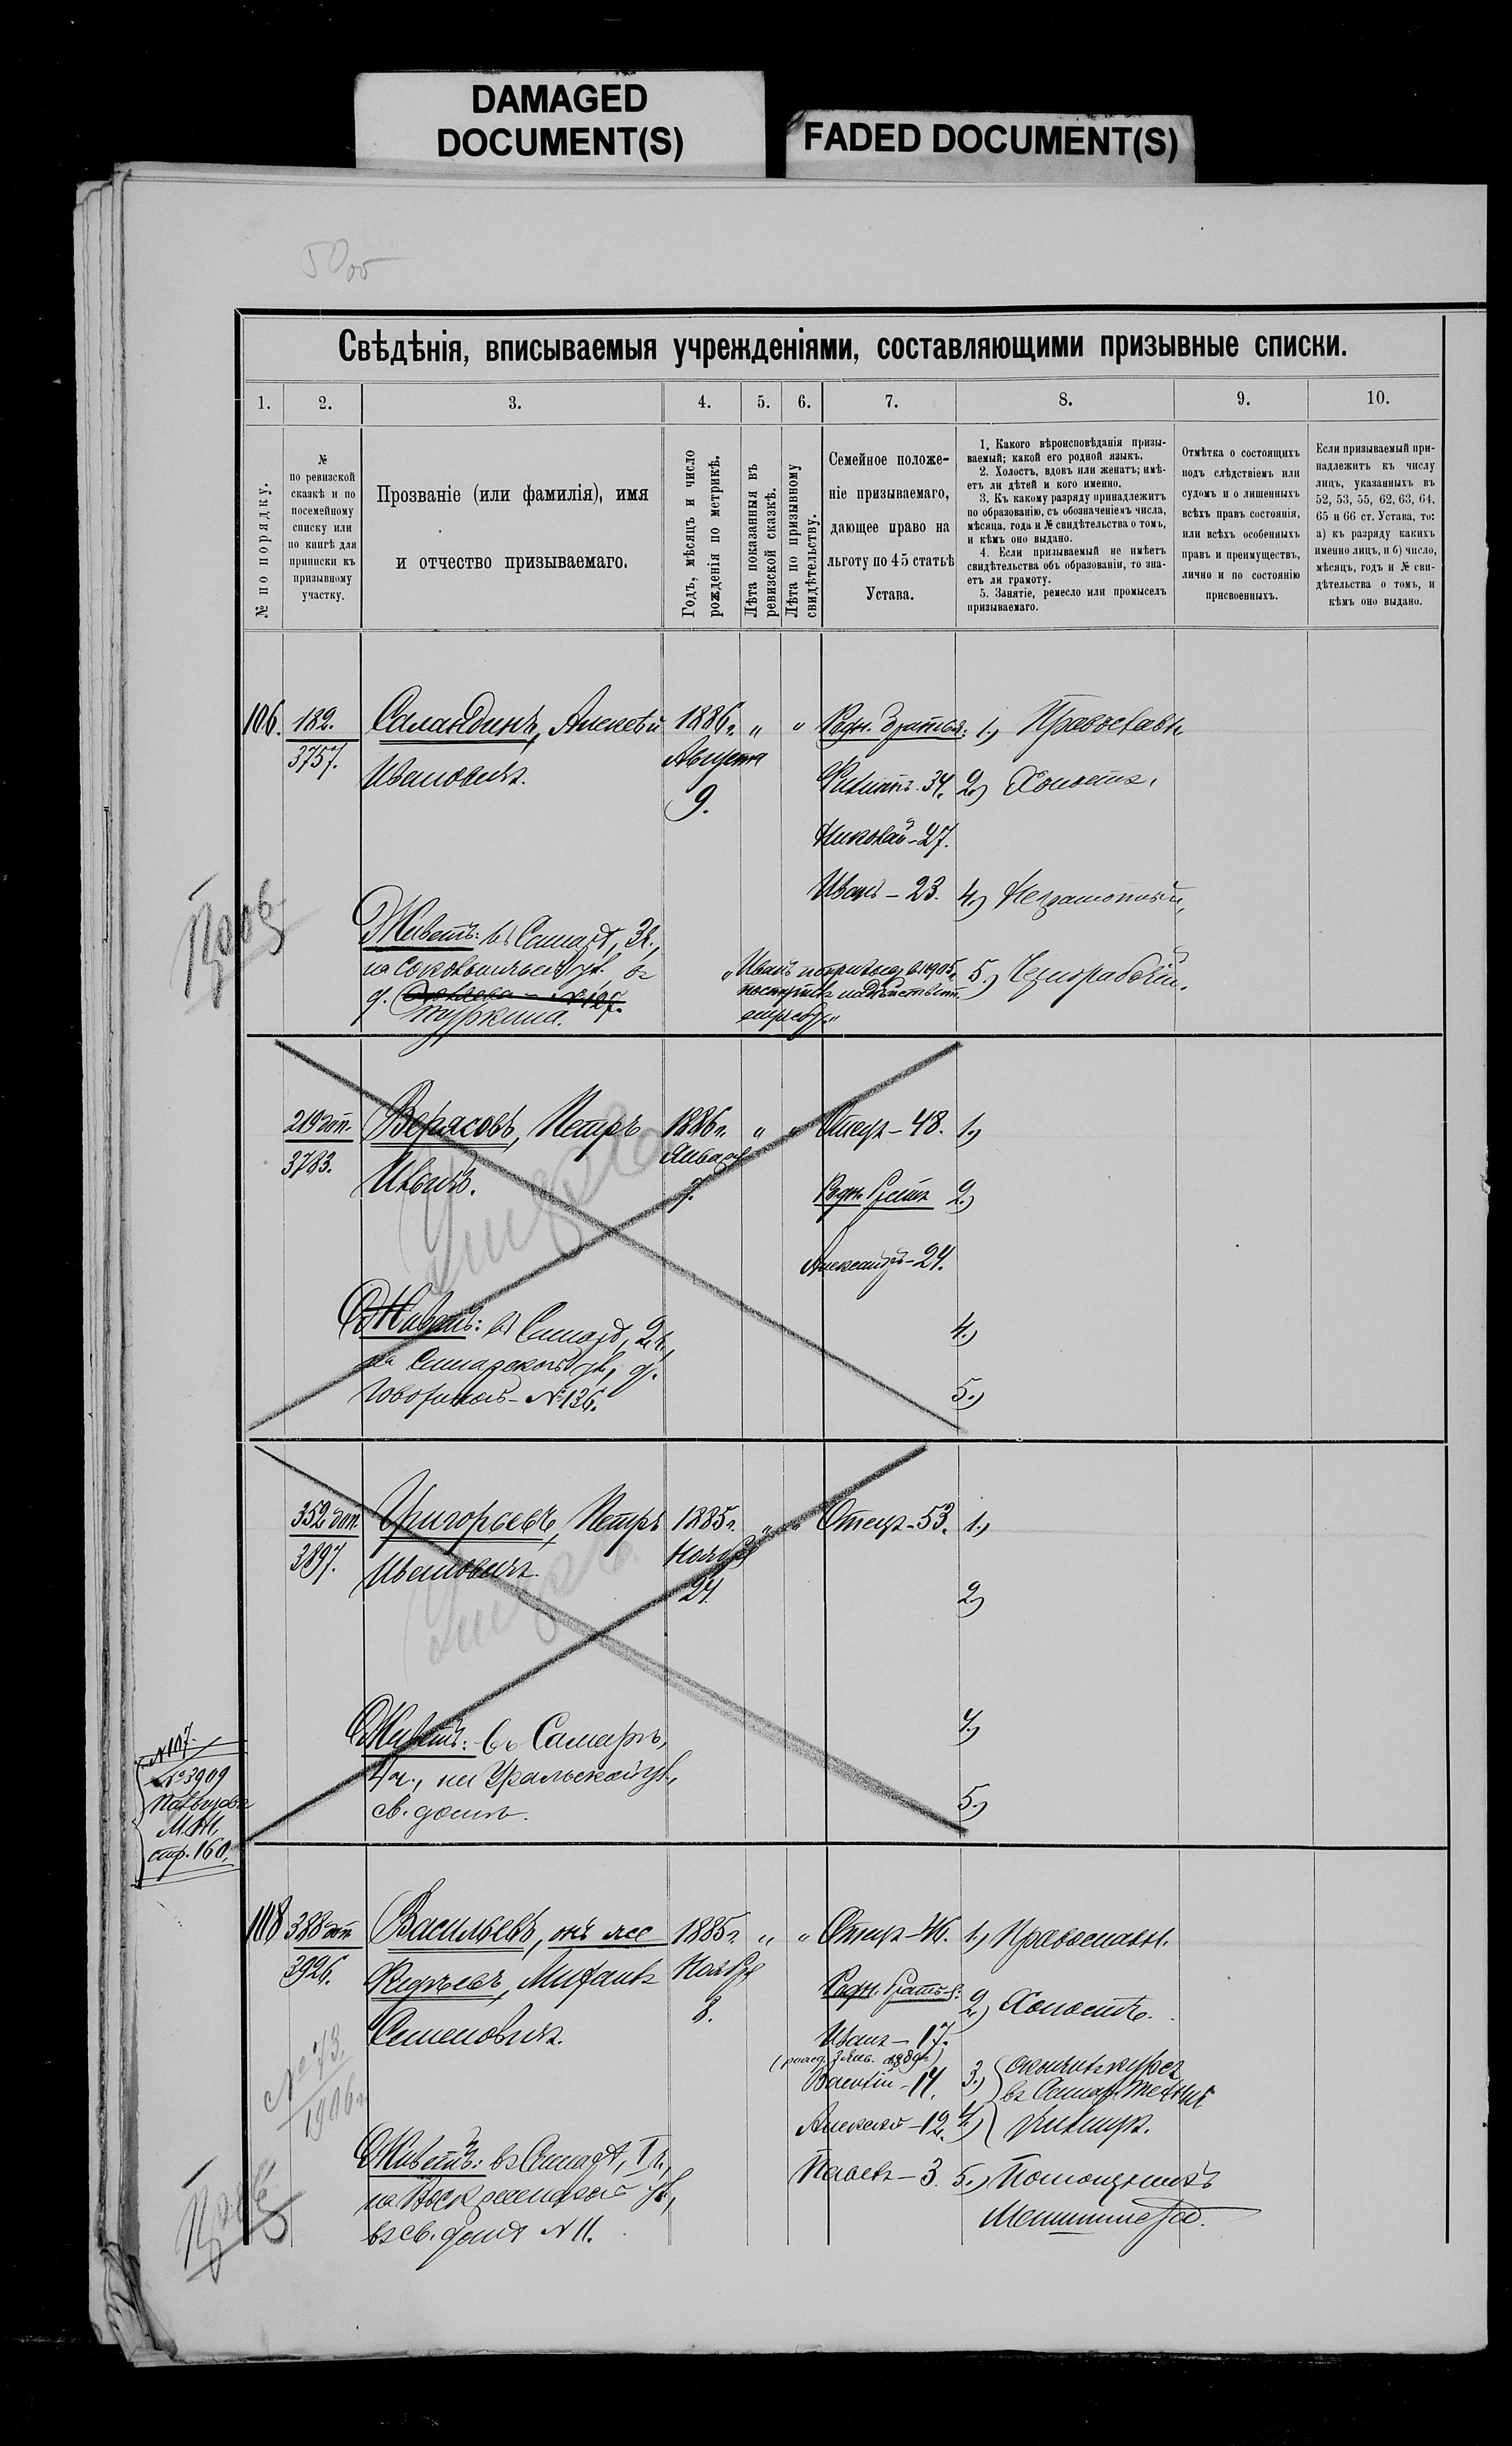 DAMAGED
DOCUMENT(S)
FADED DOCUMENT(S)
Свѣдѣнія, вписываемыя учрежденіями, составляющими призывные списки.
1. 2. 3. 4. 5. 6. 7. 8. 9. 10.
№ по порядку.
№
по ревизской
сказкѣ и по
посемейному
списку или
по книгѣ для
приписки къ
призывному
участку.
Прозваніе (или фамилія), имя
и отчество призываемаго.
Годъ, мѣсяцъ и число
рожденія по метрикѣ.
Лѣта показанныя въ
ревизской сказкѣ.
Лѣта по призывному
свидѣтельству.
Семейное положе-
ніе призываемаго,
дающее право на
льготу по 45 статьѣ
Устава.
1. Какого вѣроисповѣданія призы-
ваемый; какой его родной языкъ.
2. Холостъ, вдовъ или женатъ; имѣ-
етъ ли дѣтей и кого именно.
3. Къ какому разряду принадлежитъ
по образованію, съ обозначеніемъ числа,
мѣсяца, года и № свидѣтельства о томъ,
и кѣмъ оно выдано.
4. Если призываемый не имѣетъ
свидѣтельства объ образованіи, то зна-
етъ ли грамоту.
5. Занятіе, ремесло или промыселъ
призываемаго.
Отмѣтка о состоящихъ
подъ слѣдствіемъ или
судомъ и о лишенныхъ
всѣхъ правъ состоянія,
или всѣхъ особенныхъ
правъ и преимуществъ,
лично и по состоянію
присвоенныхъ.
Если призываемый при-
надлежитъ къ числу
лицъ, указанныхъ въ
52, 53, 55, 62, 63, 64,
65 и 66 ст. Устава, то:
а) къ разряду какихъ
именно лицъ, и б) число,
мѣсяцъ, годъ и № сви-
дѣтельства о томъ, и
кѣмъ оно выдано.
106. 182. Саландинъ, Алексѣй 1886 г. " " Родн. братья: 1.) Православн.
3757. Ивановичъ. Августа
9.
Филиппъ. 34. 2.) Холостъ.
Николай - 27.
Иванъ - 23. 4.) Неграмотный,
Живетъ: въ Самарѣ, 3 ч.,
на ул. въ
д. № 127.
"Иванъ въ 1905 г. 5.) Чернорабочій.
219 доп. Верясовъ, Петръ 1886 г. " " Отецъ - 48. 1.)
3783. Ильичъ. Января
Родн. братъ 2.)
Александръ - 24.
Умеръ
Живетъ: въ Самарѣ, 2 ч., 4.)
на Самарской ул., д.
№ 136. 5.)
352 доп. Григорьевъ, Петръ 1885 г. " " Отецъ - 53. 1.)
3897. Ивановичъ. Ноября
24. 2.)
Умеръ.
Живетъ: въ Самарѣ, 4.)
4 ч., на Уральской ул.,
св. домъ. 5.)
№ 107.
№ 3909
М. И.
стр. 160.
108 388 доп. Васильевъ, онъ же 1885 г. " " Отецъ - 46. 1.) Православн.
3926. Ноября
Семеновичъ. 8.
Родн. братья: 2.) Холостъ.
Иванъ - 17.
(рожд. 3 Янв. 1889 г.)
Василій - 14. 3.) окончилъ курсъ
въ Самар.
Алексѣй - 12. 4.) училищѣ.
Павелъ - 3. 5.) Помощникъ
Машиниста.
№ 73.
1906 г.
Живетъ: въ Самарѣ, I ч.,
на Воскресенской ул.,
въ св. домѣ № 11.